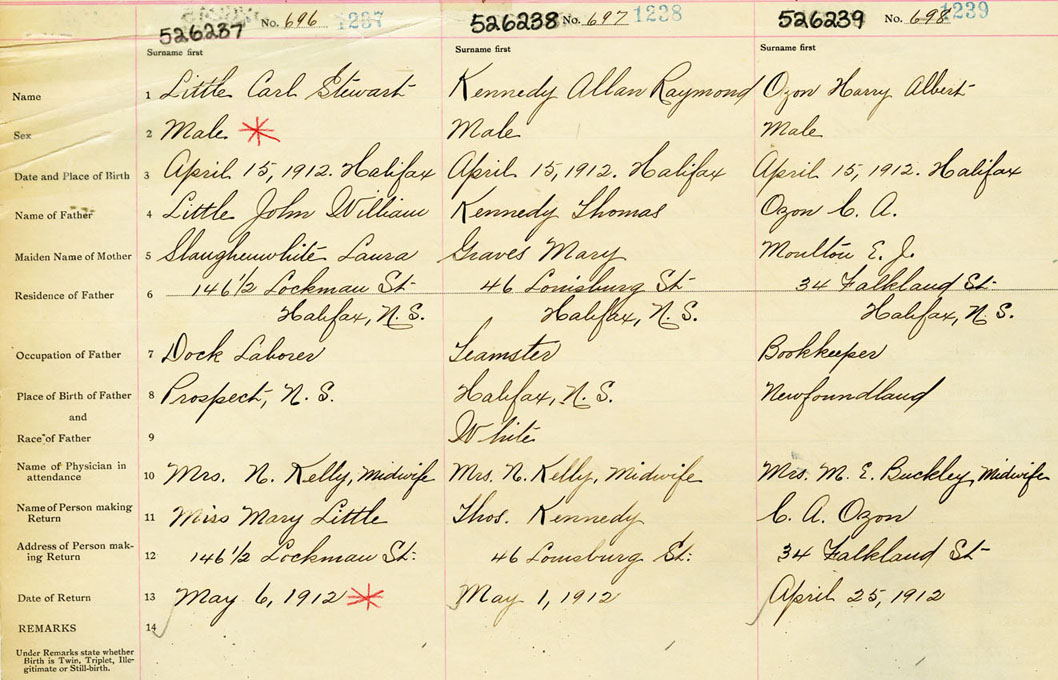 526237 No. 696 1237 526238 No. 697 1238 526239 No. 698 1239
Surname first Surname first Surname first
Name 1 Little Carl Stewart Kennedy Allan Raymond Ozon Harry Albert
Sex 2 Male Male Male
Date and Place of Birth 3 April 15, 1912. Halifax April 15, 1912. Halifax April 15, 1912. Halifax
Name of Father 4 Little John William Kennedy Thomas Ozon C. A.
Maiden Name of Mother 5 Slaughenwhite Laura Graves Mary Moulton E. J.
Residence of Father 6 146½ Lockman St. 46 Louisburg St. 34 Falkland St.
Halifax, N.S. Halifax, N.S. Halifax, N.S.
Occupation of Father 7 Dock Laborer Teamster Bookkeeper
Place of Birth of Father 8 Prospect, N.S. Halifax, N.S. Newfoundland
and
Race of Father 9 White
Name of Physician in
attendance 10 Mrs. N. Kelly, Midwife Mrs. N. Kelly, Midwife Mrs. M. E. Buckley, Midwife
Name of Person making
Return 11 Miss Mary Little Thos. Kennedy C. A. Ozon
Address of Person mak-
ing Return 12 146½ Lockman St. 46 Louisburg St. 34 Falkland St
Date of Return 13 May 6, 1912 May 1, 1912 April 25, 1912
REMARKS 14
Under Remarks state whether
Birth is Twin, Triplet, Ille-
gitimate or Still-birth.